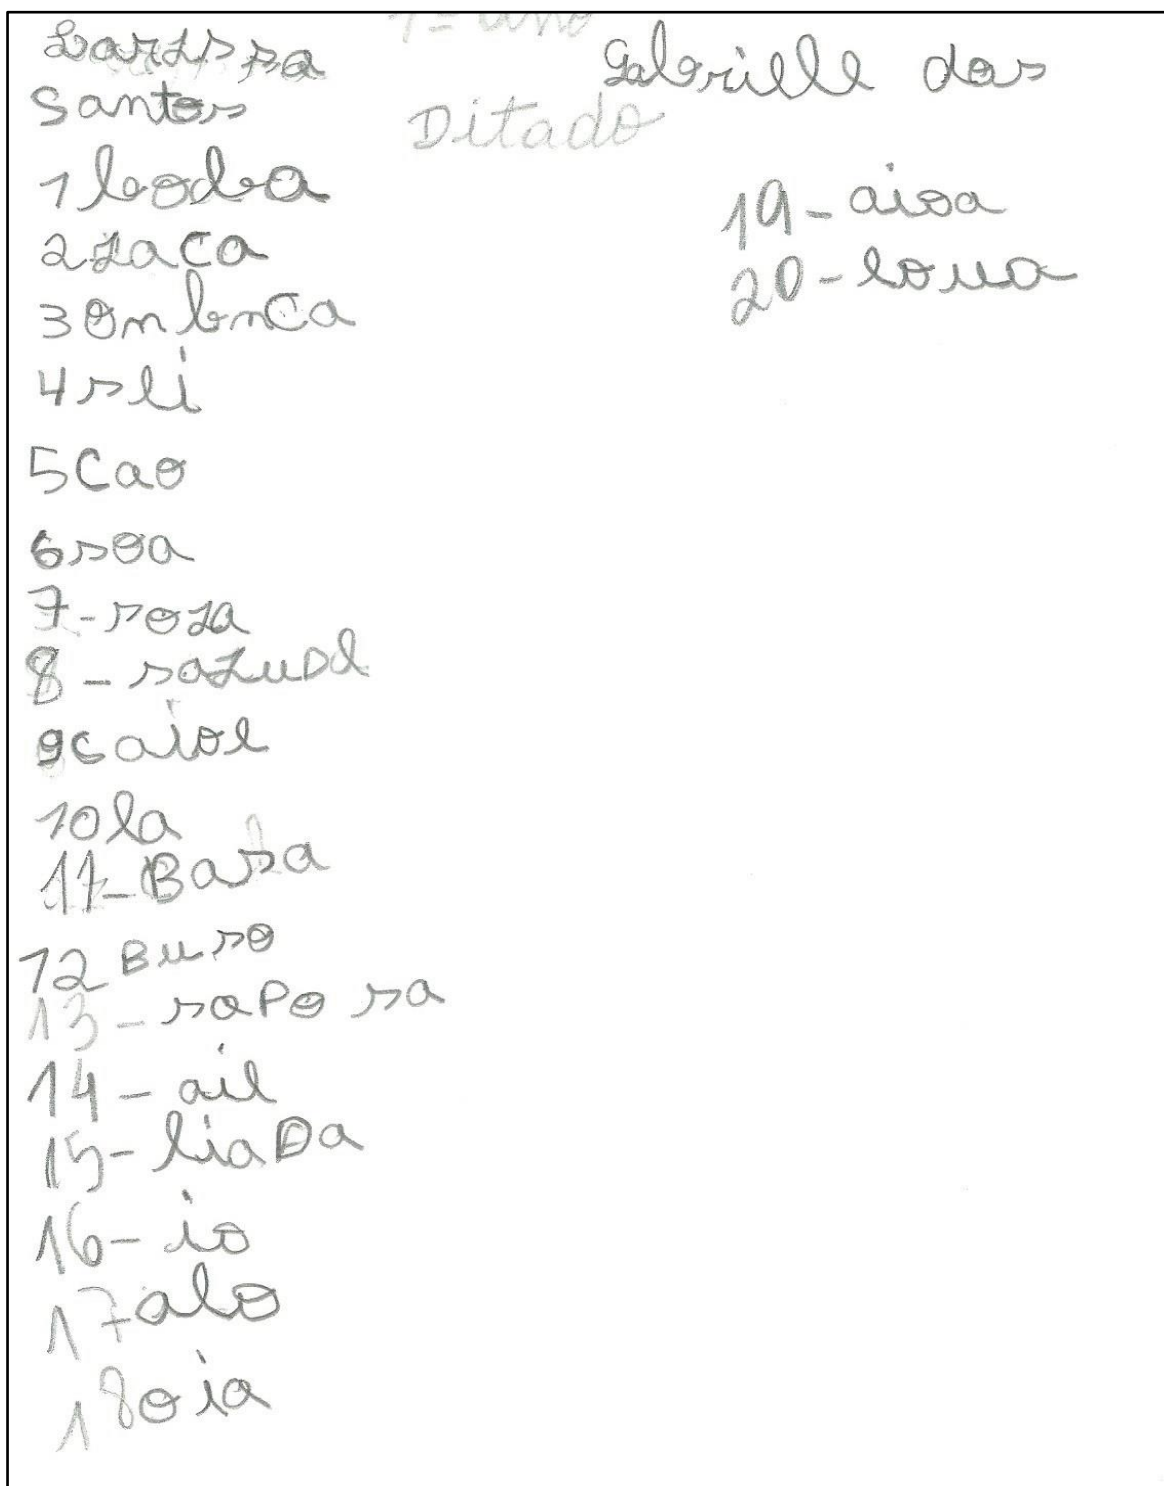 1º ano
Larissa Gabrielle dos
Santos
Ditado
1 bodba
2 zaca
3 Onbnca
4 sli
5 Cao
6 soa
7-roza
8-sazudl
9 caiol
10 la
11-Basa
12 Buro
13-rapo sa
14-ail
15-liaDa
16-io
17 alo
18 oia
19-aisa
20-loua